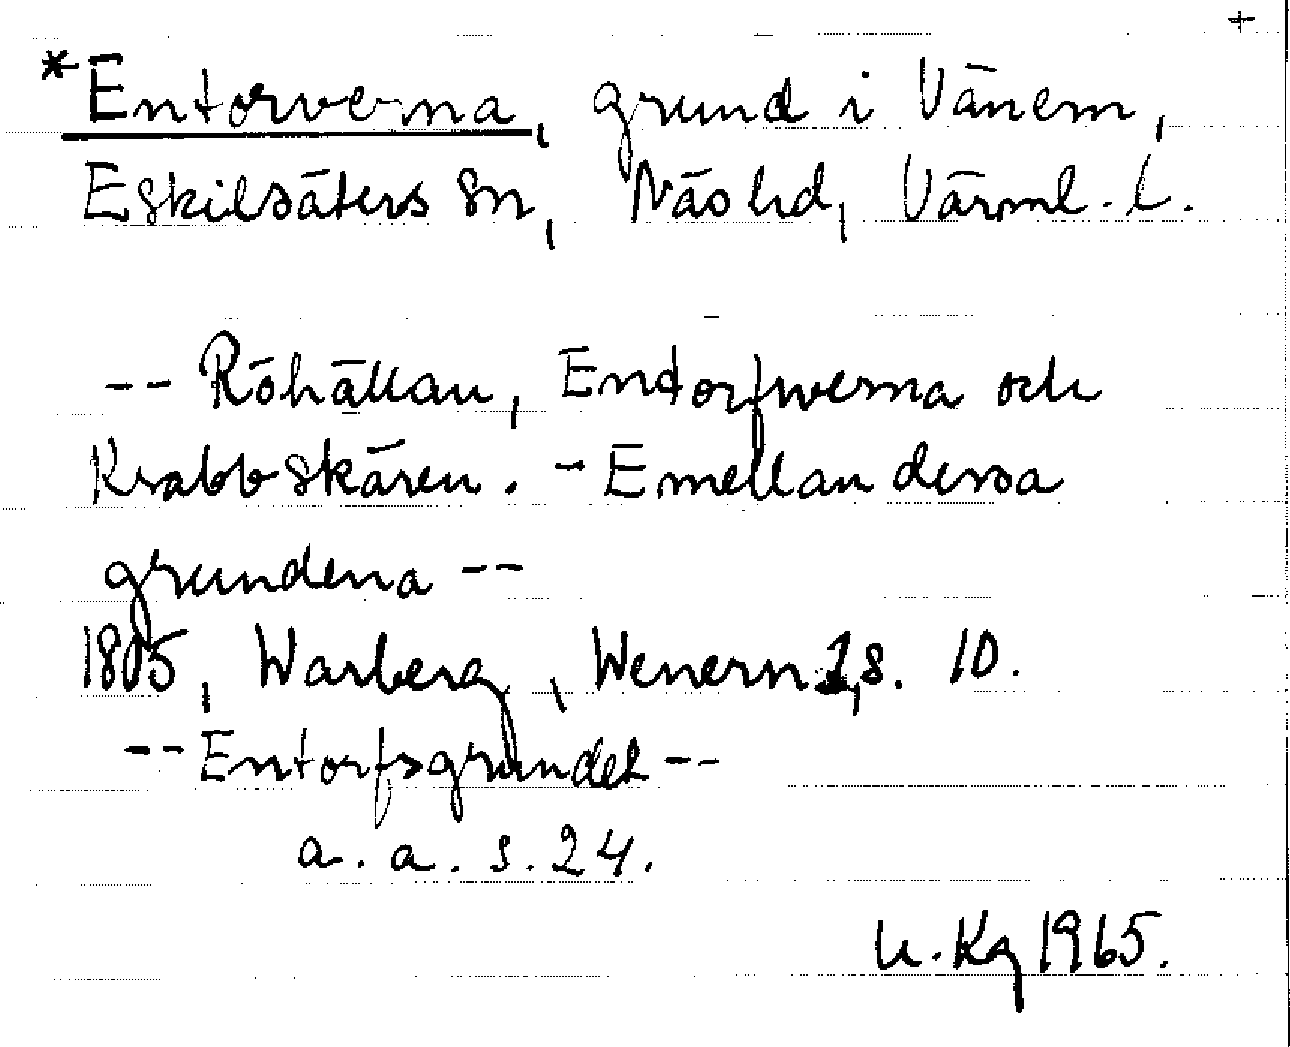 +
*Entorverna, grund i Vänern,
Eskilsäters sn, Näs hd, Värml. l.
-- Röhällan, Endorfwerna och
Krabbskären. - Emellan dessa
grundena --
1805, Warberg, Wenern 1, s. 10.
-- Entorfsgrundet --
a. a. s. 24.
U. Kg 1965.